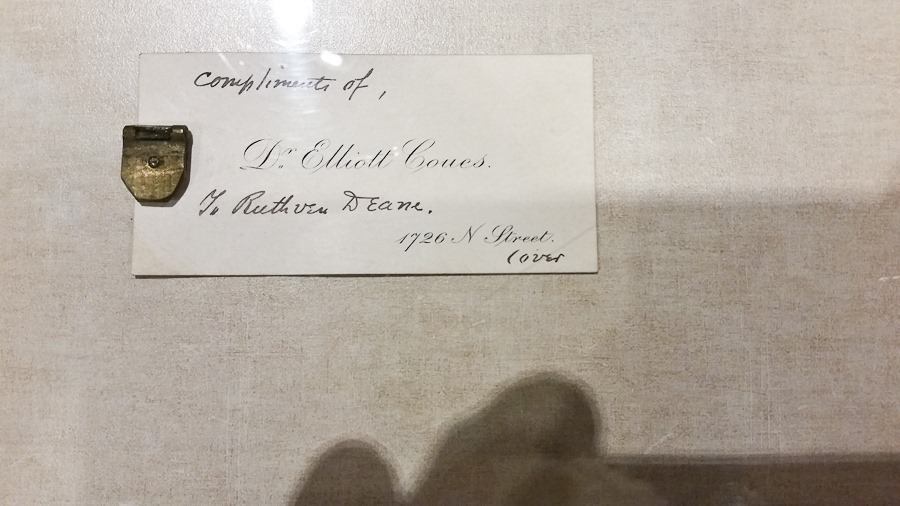 Compliments of,
Dr. Elliott Coues.
To Ruthven Deane.
1726 N Street.
(over